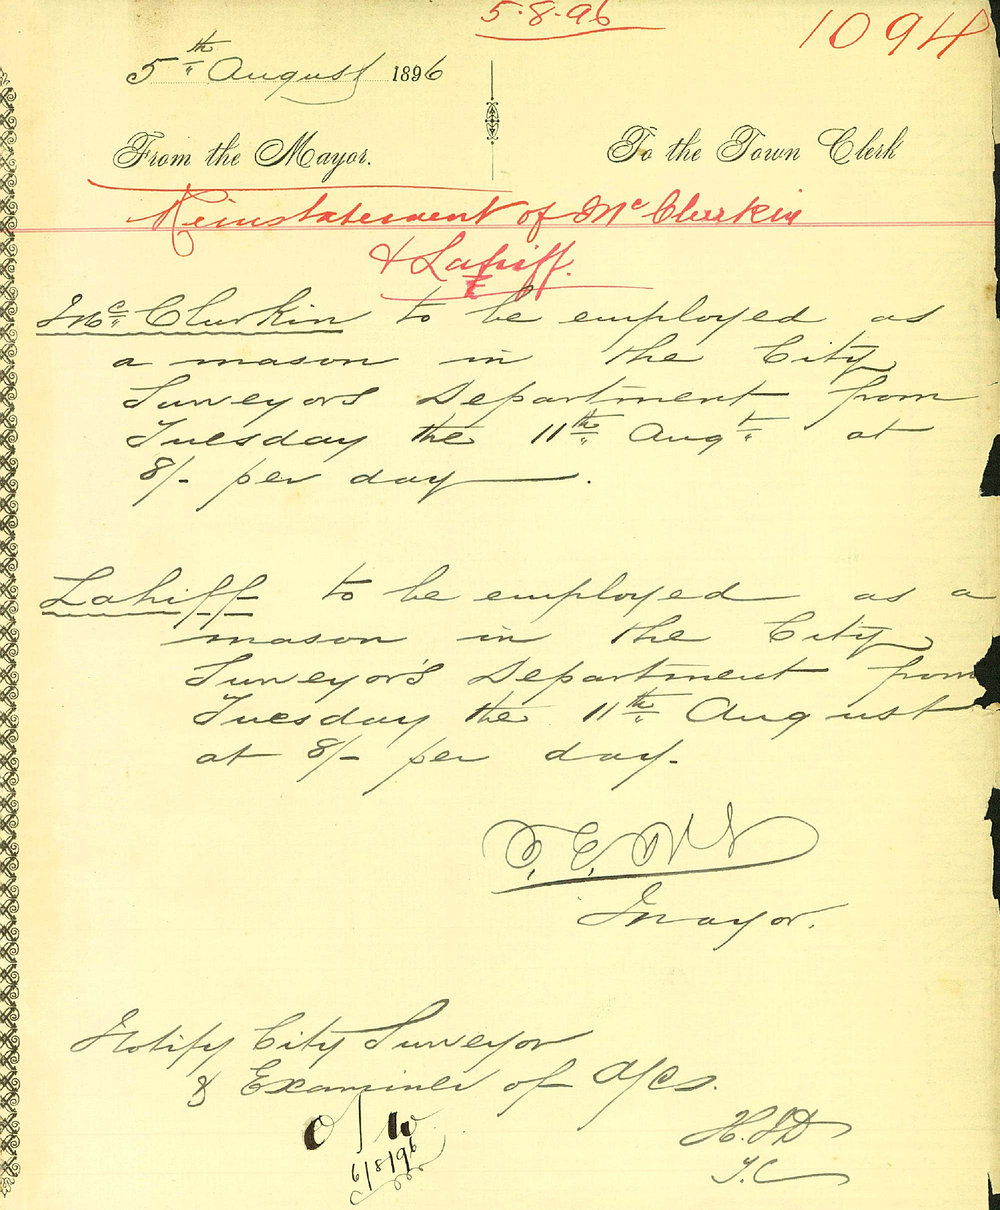 5.8.96
1094
5th August 1896
From the Mayor.
To the Town Clerk
Reinstatement of McClurkin
& Lahiff.
McClurkin to be employed as
a mason in the City
Surveyors Department from
Tuesday the 11th Augt at
8/- per day.
Lahiff to be employed as a
mason in the City
Surveyor's Department from
Tuesday the 11th August
at 8/- per day.
Mayor.
Notify City Surveyor
& Examiner of A/cs.
H.J.D
T.C
6/8/96